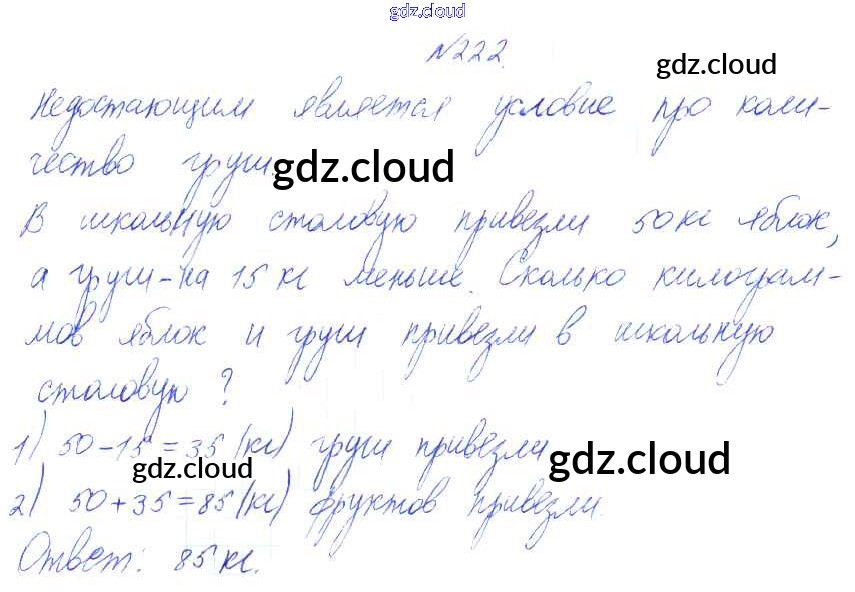 gdz.cloud
№222.
gdz.cloud
Недостающим является условие про коли-
чество груш.
gdz.cloud
В школьную столовую привезли 50 кг яблок,
а груш - на 15 кг меньше. Сколько килограм-
мов яблок и груш привезли в школьную
столовую?
1) 50-15=35 (кг) груш привезли
gdz.cloud gdz.cloud
2) 50+35=85 (кг) фруктов привезли.
Ответ: 85 кг.